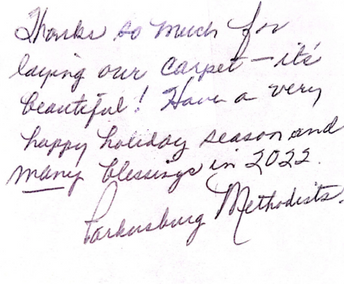 Thanks so much for
laying our carpet – it's
beautiful! Have a very
happy holiday season and
many blessings in 2022.
Parkersburg Methodists.